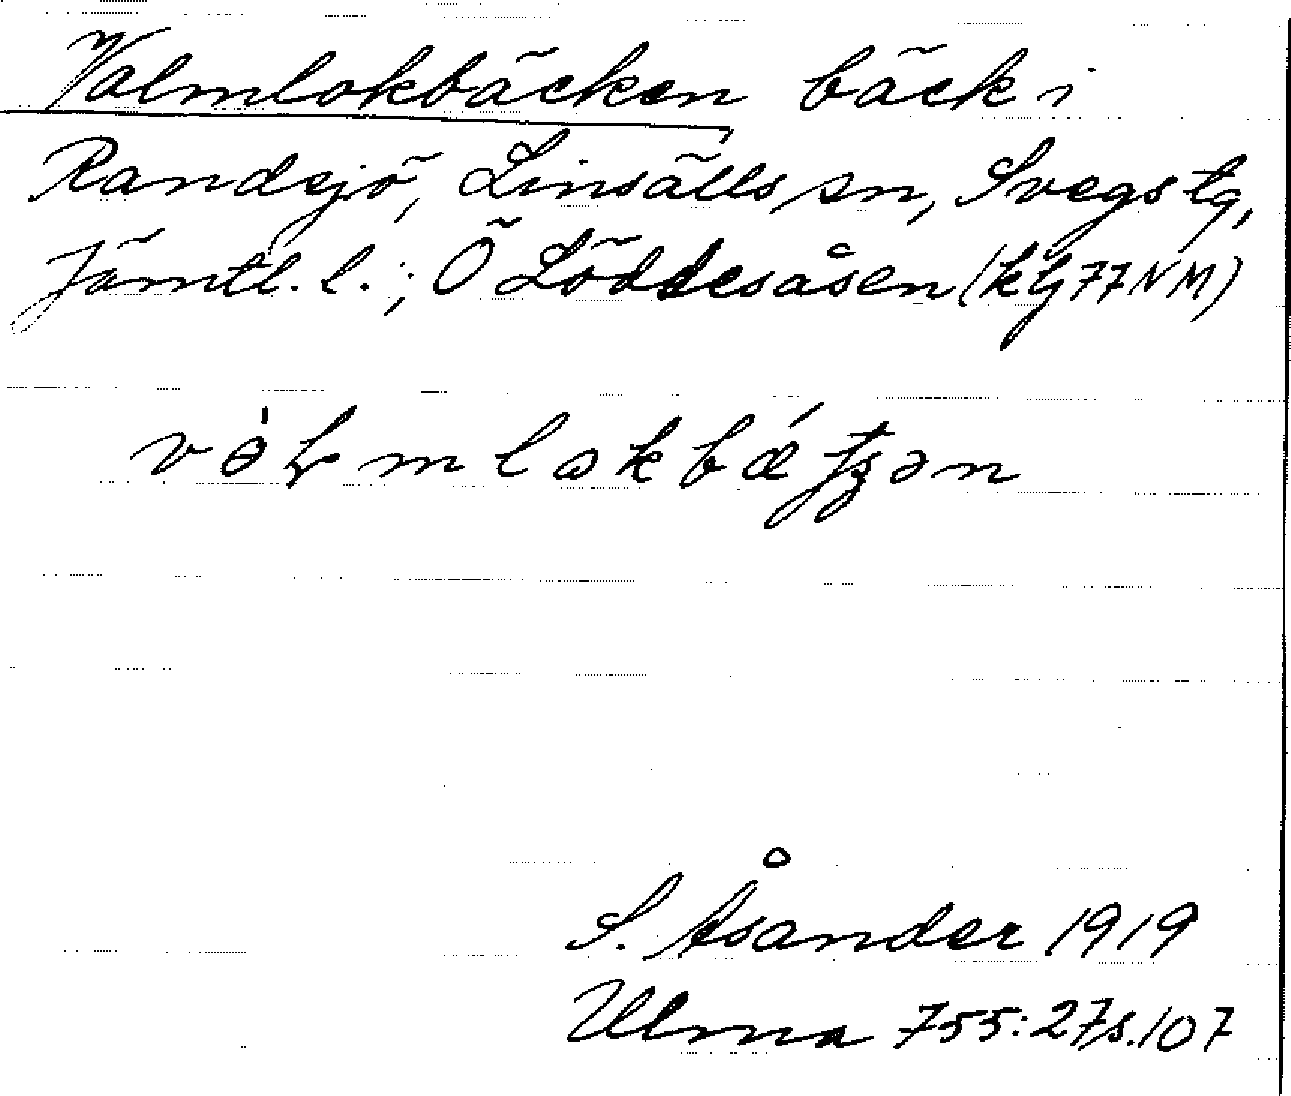 Valmlokbäcken bäck i
Randsjö, Linsälls sn, Svegs tg,
Jämtl. l.; Ö Löddesåsen (kbl 77 NM)
S. Åsander 1919
Ulma 755:27 s. 107